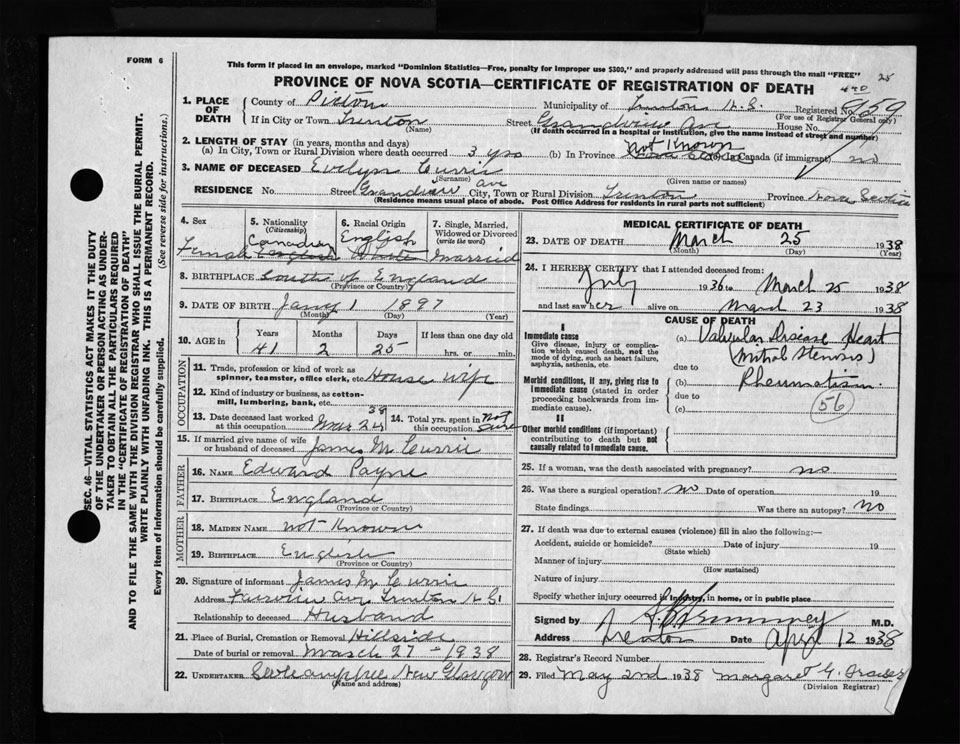 FORM 6
This form if placed in an envelope, marked "Dominion Statistics—Free, penalty for improper use $300," and properly addressed will pass through the mail "FREE"
25
PROVINCE OF NOVA SCOTIA—CERTIFICATE OF REGISTRATION OF DEATH
490
1. PLACE OF DEATH
County of Pictou Municipality of Trenton N.S. Registered No. 959
(For use of Registrar General only)
If in City or Town Trenton Street Grandview Ave House No.
(Name) (If death occurred in a hospital or institution, give the name instead of street and number)
2. LENGTH OF STAY (in years, months and days)
Not Known
(a) In City, Town or Rural Division where death occurred 3 yrs (b) In Province in Canada (if immigrant) no
3. NAME OF DECEASED Evelyn Currie
(Surname) (Given name or names)
RESIDENCE No. Street Grandview Ave City, Town or Rural Division Trenton Province Nova Scotia
(Residence means usual place of abode. Post Office Address for residents in rural parts not sufficient)
SEC. 46—VITAL STATISTICS ACT MAKES IT THE DUTY
OF THE UNDERTAKER OR PERSON ACTING AS UNDER-
TAKER TO OBTAIN ALL THE PARTICULARS REQUIRED
IN THE "CERTIFICATE OF REGISTRATION OF DEATH"
AND TO FILE THE SAME WITH THE DIVISION REGISTRAR WHO SHALL ISSUE THE BURIAL PERMIT.
WRITE PLAINLY WITH UNFADING INK. THIS IS A PERMANENT RECORD.
Every item of Information should be carefully supplied. (See reverse side for instructions.)
4. Sex
Female
5. Nationality
(Citizenship)
Canadian
English
6. Racial Origin
English
White
7. Single, Married, Widowed or Divorced
(write the word)
Married
8. BIRTHPLACE South of England
(Province or Country)
9. DATE OF BIRTH Jany 1 1897
(Month) (Day) (Year)
10. AGE in
Years Months Days If less than one day old
41 2 25 hrs. or min.
OCCUPATION
11. Trade, profession or kind of work as
spinner, teamster, office clerk, etc. House wife
12. Kind of industry or business, as cotton-
mill, lumbering, bank, etc.
13. Date deceased last worked
at this occupation Mar 24 38
14. Total yrs. spent in
this occupation Not sure
15. If married give name of wife
or husband of deceased James M Currie
FATHER
16. NAME Edward Payne
17. BIRTHPLACE England
(Province or Country)
MOTHER
18. MAIDEN NAME Not Known
19. BIRTHPLACE English
(Province or Country)
20. Signature of informant James M Currie
Address Fairview Ave Trenton N.S.
Relationship to deceased Husband
21. Place of Burial, Cremation or Removal Hillside
Date of burial or removal March 27 - 1938
22. UNDERTAKER New Glasgow
(Name and address)
MEDICAL CERTIFICATE OF DEATH
23. DATE OF DEATH March 25 1938
(Month) (Day) (Year)
24. I HEREBY CERTIFY that I attended deceased from:
July 1936 to March 25 1938
and last saw her alive on March 23 1938
CAUSE OF DEATH
I
Immediate cause
Give disease, injury or complica-
tion which caused death, not the
mode of dying, such as heart failure,
asphyxia, asthenia, etc.
(a) Valvular Disease Heart
(Mitral Stenosis)
due to
Morbid conditions, if any, giving rise to
immediate cause (stated in order
proceeding backwards from im-
mediate cause).
(b) Rheumatism.
due to
(c)
56
II
Other morbid conditions (if important)
contributing to death but not
causally related to immediate cause.
25. If a woman, was the death associated with pregnancy? no
26. Was there a surgical operation? no Date of operation 19
State findings Was there an autopsy? no
27. If death was due to external causes (violence) fill in also the following:—
Accident, suicide or homicide? Date of injury 19
(State which)
Manner of injury
(How sustained)
Nature of injury
Specify whether injury occurred in industry, in home, or in public place
Signed by M.D.
Address Trenton Date Apr 12 1938
28. Registrar's Record Number
29. Filed May 2nd 1938 Margaret G. Fraser
(Division Registrar)